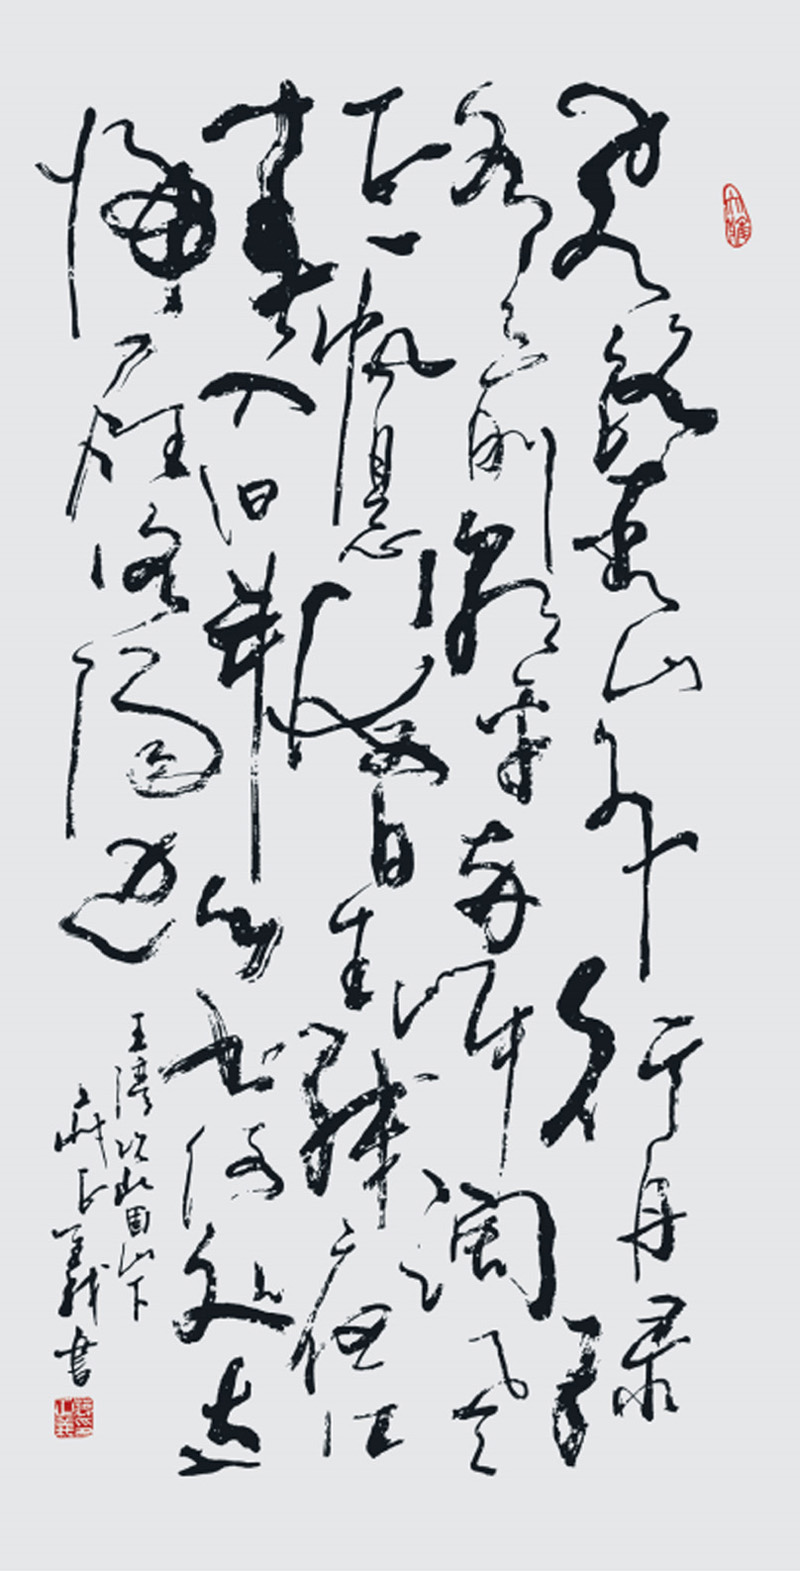 客路青山外行舟绿
水前潮平两岸阔风
正一帆悬海日生残夜江
春入旧年乡书何处达
歸雁洛陽边
王湾次北固山下
正義書